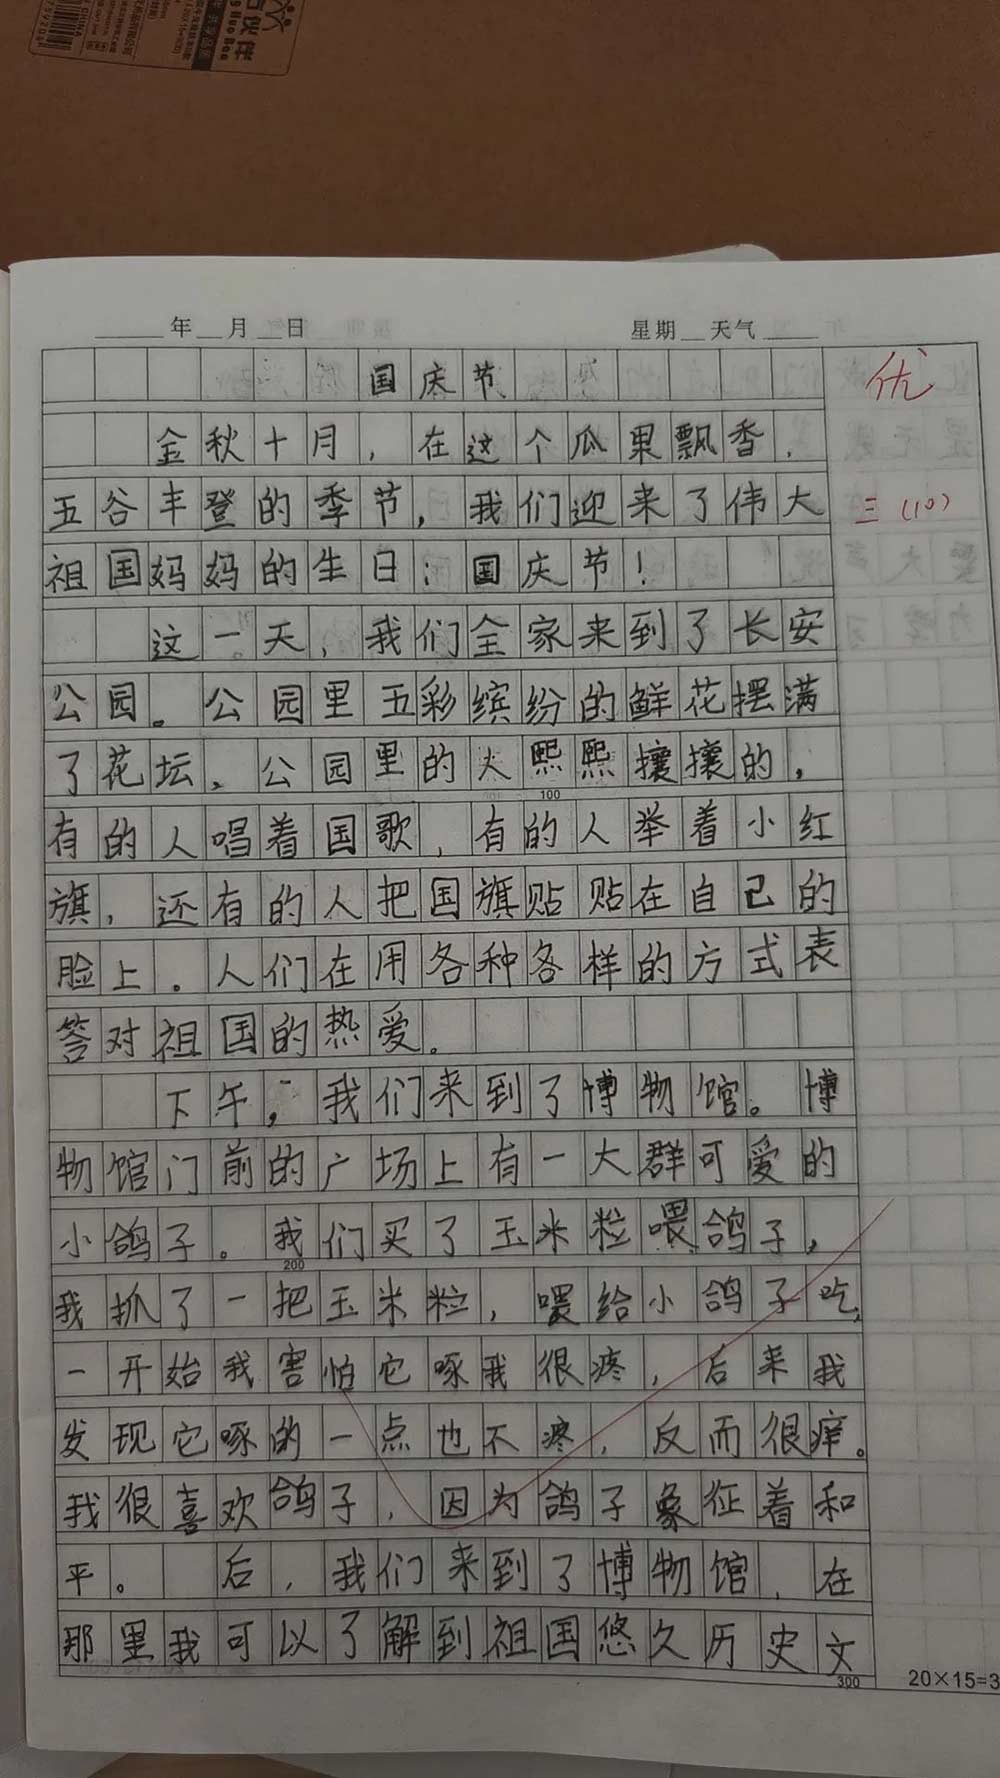 年 月 日 星期 天气
国庆节
优
金秋十月，在这个瓜果飘香，
五谷丰登的季节，我们迎来了伟大
三(10)
祖国妈妈的生日：国庆节！
这一天，我们全家来到了长安
公园。公园里五彩缤纷的鲜花摆满
了花坛，公园里的人熙熙攘攘的，
100
有的人唱着国歌，有的人举着小红
旗，还有的人把国旗贴贴在自己的
脸上。人们在用各种各样的方式表
答对祖国的热爱。
下午，我们来到了博物馆。博
物馆门前的广场上有一大群可爱的
小鸽子。我们买了玉米粒喂鸽子，
200
我抓了一把玉米粒，喂给小鸽子吃，
一开始我害怕它啄我很疼，后来我
发现它啄的一点也不疼，反而很痒。
我很喜欢鸽子，因为鸽子象征着和
平。 后，我们来到了博物馆，在
那里我可以了解到祖国悠久历史文
300
20×15=3